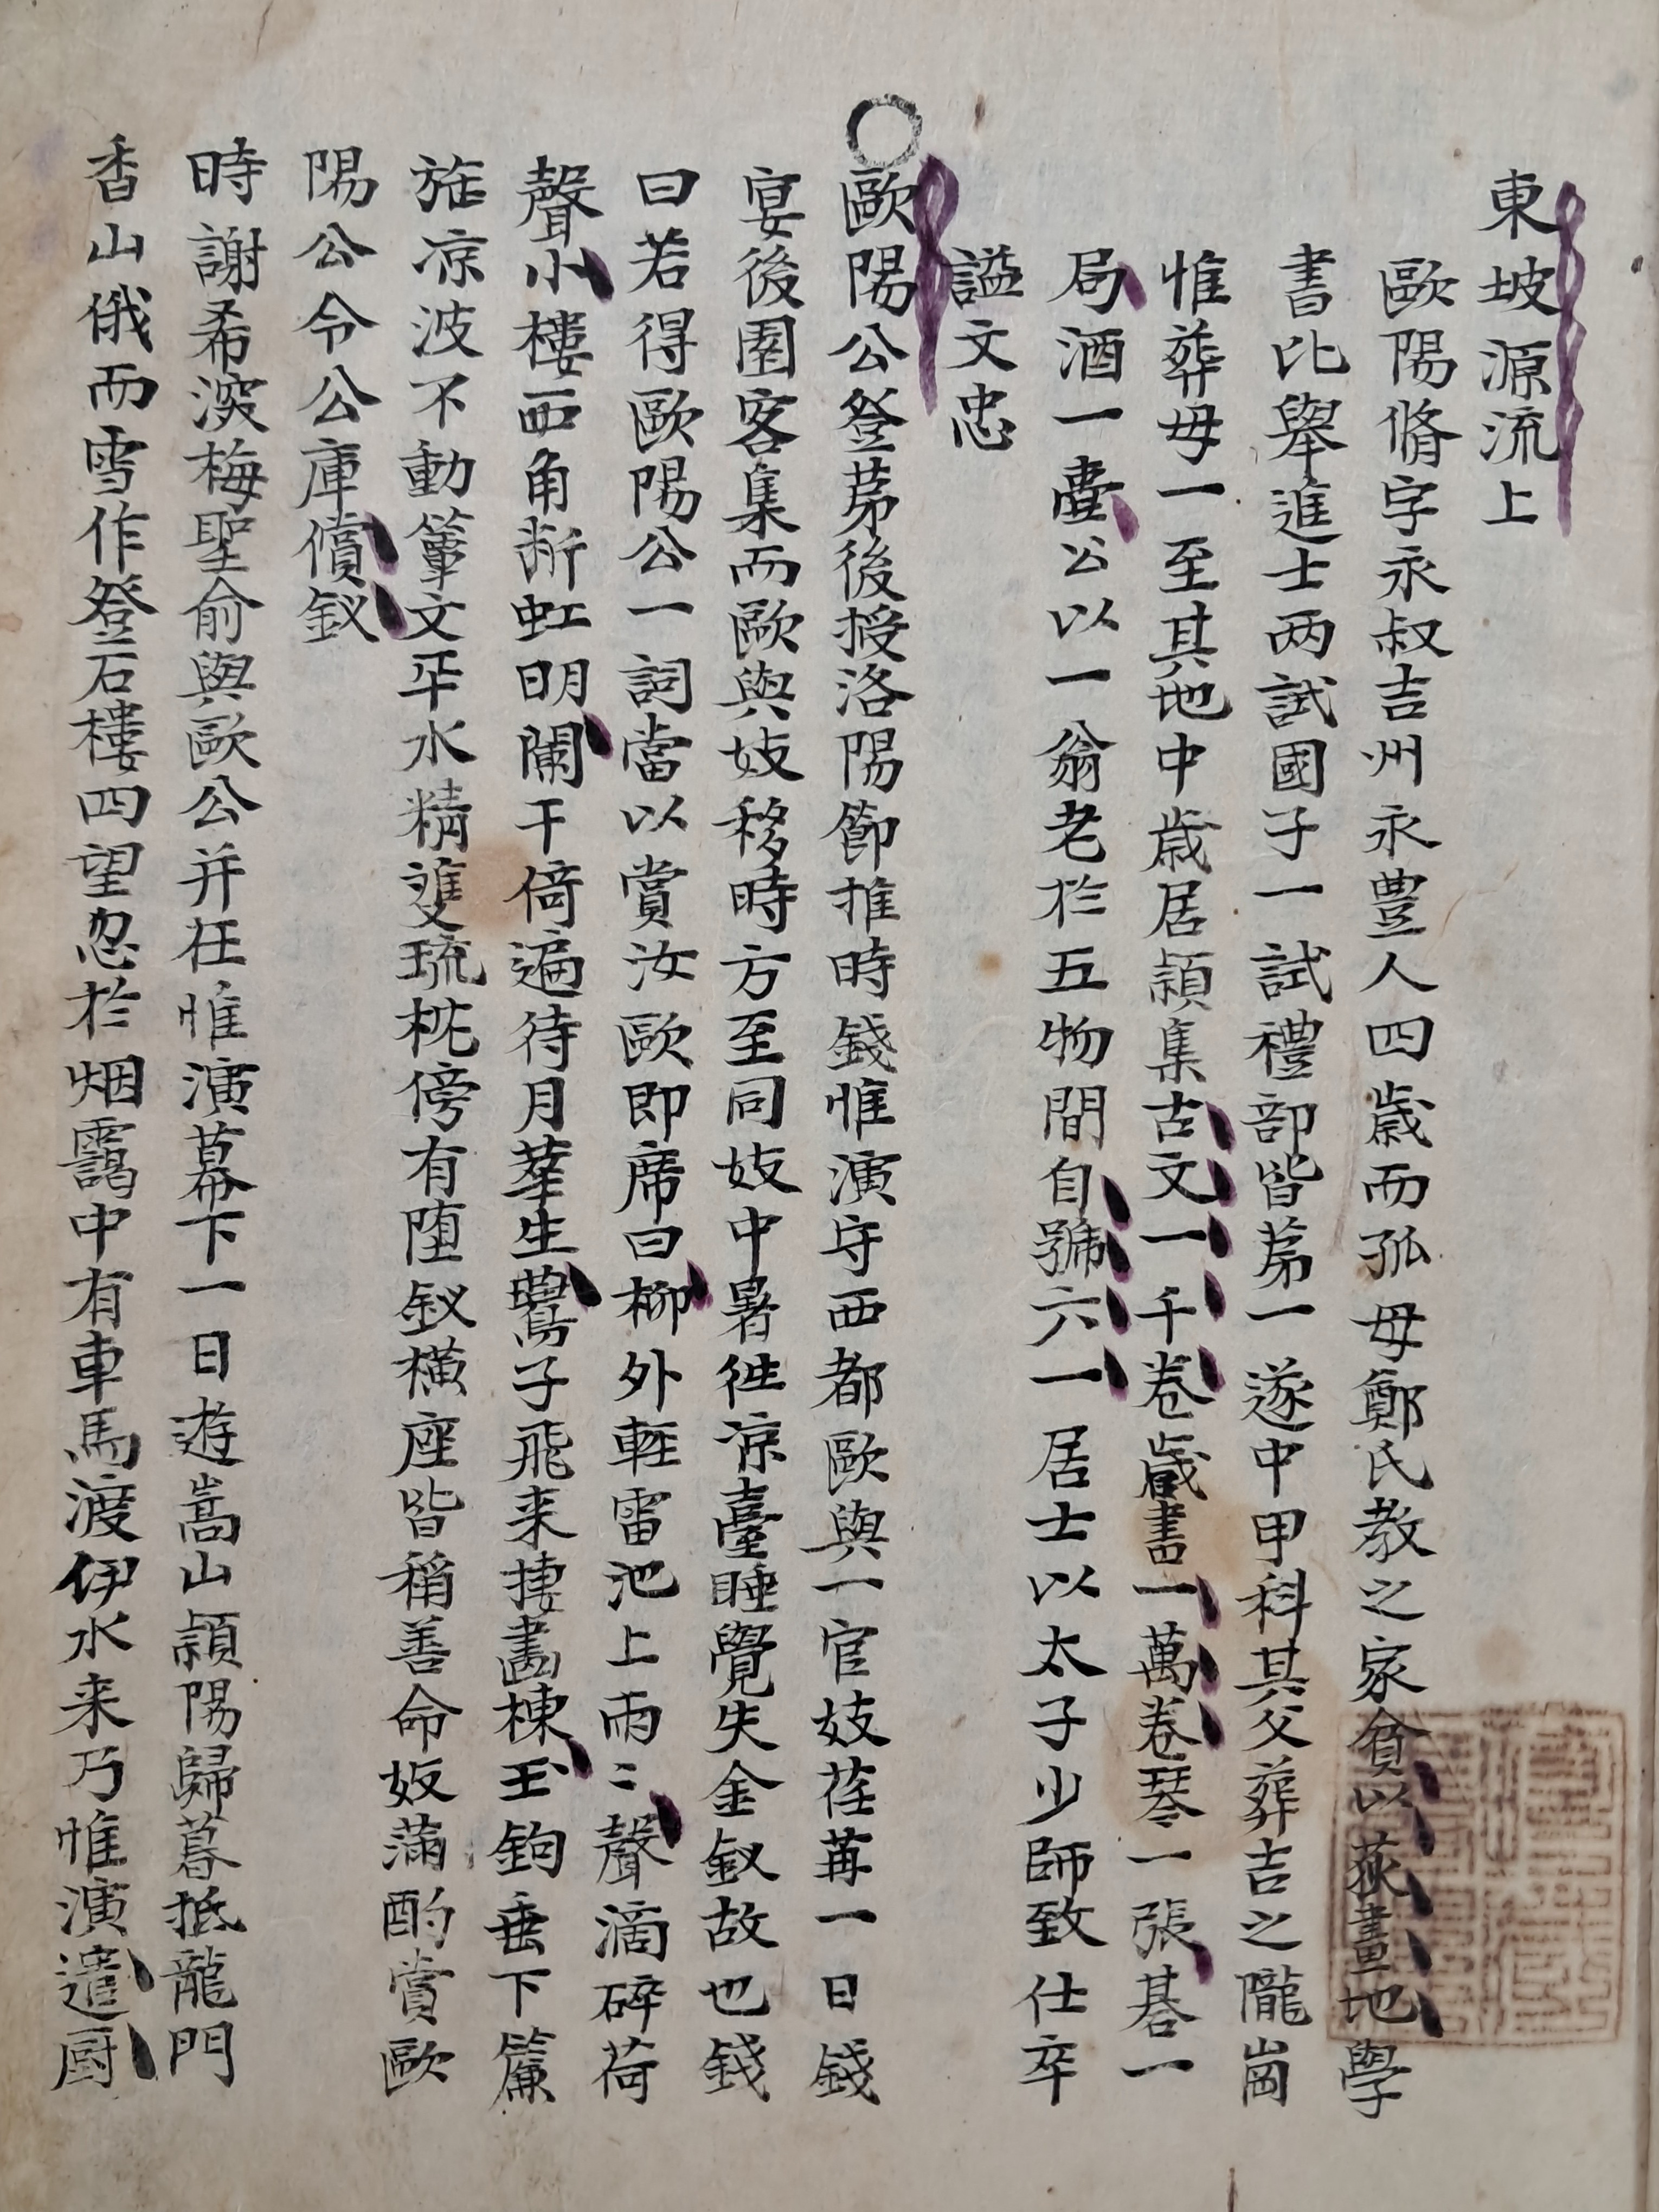 東坡源流上
歐陽脩字永叔吉州永豊人四歲而孤母鄭氏教之家貧以荻畫地學
書比舉進士两試國子一試禮部皆苐一遂中甲科其父葬吉之隴崗
惟葬母一至其地中歲居頴集古文一千卷歲書一萬卷琴一張碁一
局酒一壷公以一翁老於五物間自號六一居士以太子少師致仕卒
謚文忠
○歐陽公登苐後授洛陽節推時錢惟演守西都歐與一官妓荏苒一日錢
宴後園客集而歐與妓移時方至同妓中暑徃凉臺睡覺失金釵故也錢
曰若得歐陽公一詞當以賞汝歐即席曰柳外輕雷池上雨〻聲滴碎荷
聲小樓西角断虹明闌干倚遍待月華生鷰子飛来捿畵棟玉鉤垂下簾
旌凉波不動簟文平水精雙琉枕傍有堕釵横座皆稱善命妓滿酌賞歐
陽公令公庫償釵
時謝希深梅聖俞與歐公并在惟演幕下一日遊嵩山頴陽歸暮抵龍門
香山俄而雪作登石樓四望忽於烟靄中有車馬渡伊水来乃惟演遣厨